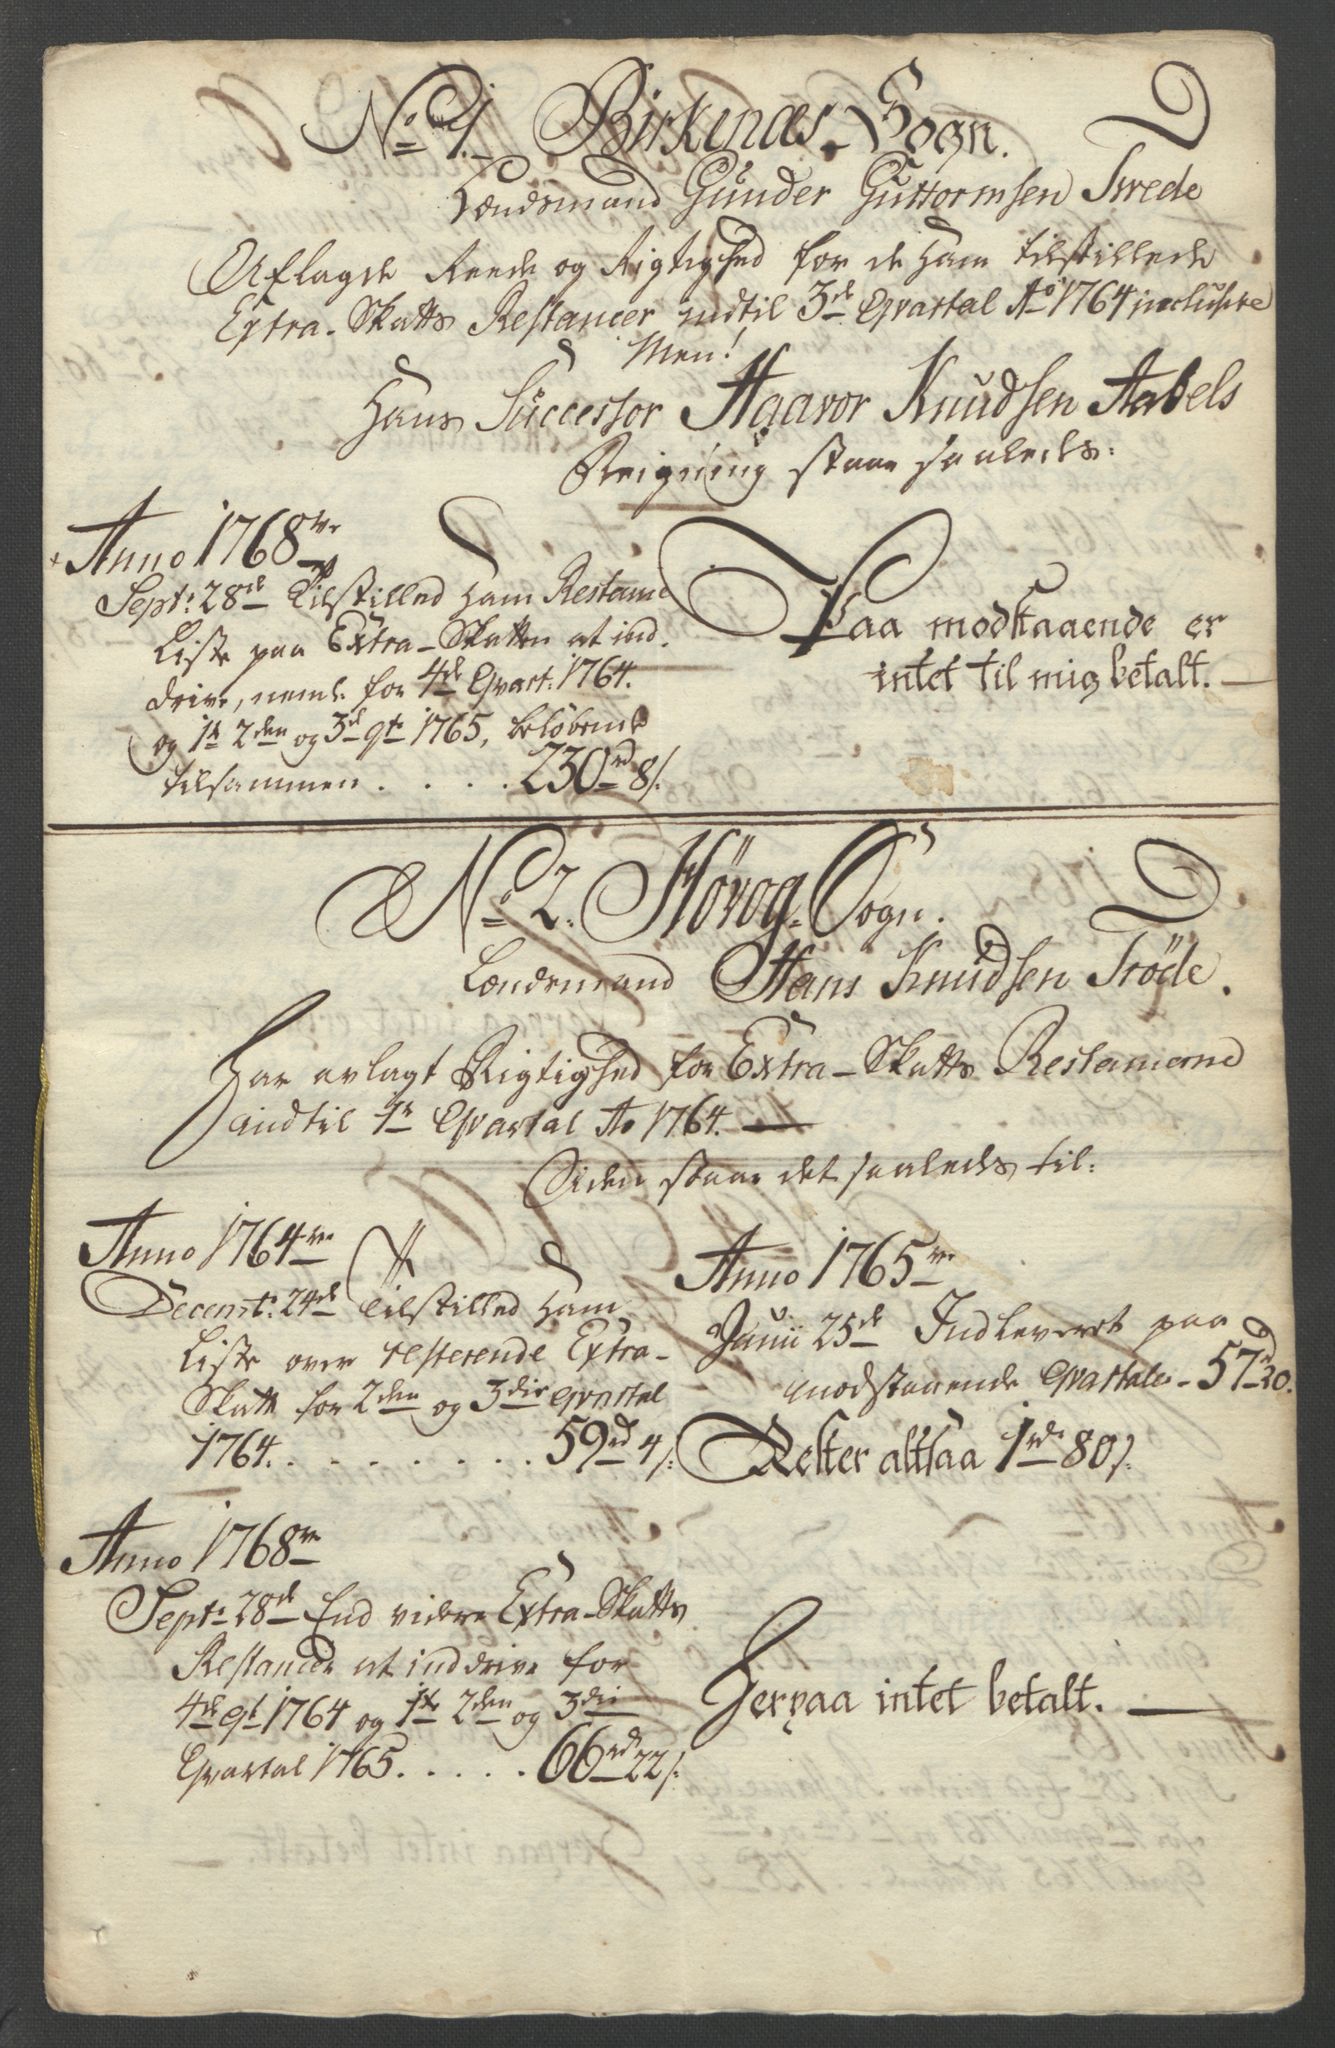 No 1. Birkenæs-Sogn.
Lændsmand Gunder Guttormsen Tvede
Aflagde Reede og Rigtighed for de ham tilstillede
Extra-Skatts Restancer indtil 3de Qvartal Ao 1764 inclusive
Men!
Hans Successor Haavor Knudsen Aabels
Reigning staar saaledes:
Anno 1768ve
Septr 28de Tilstilled ham Restance
Liste paa Extra-Skatten at ind-
drive, neml. for 4de Qvart: 1764.
og 1te 2den og 3de qt 1765, beløbende
tilsammen . . . . 230rd 8/.
Paa modstaaende er
intet til mig betalt. —
No 2. Høvog-Sogn.
Lændsmand Hans Knudsen Trøde.
Har avlagt Rigtighed for Extra-Skatts Restancerne
indtil 1te Qvartal Ao 1764. —
Siden staar det saaledes til:
Anno 1764ve
Decembr. 24de Tilstilled ham
Liste over resterende Extra-
Skatt for 2den og 3die qvartal
1764. . . . . . . . . 59rd 4/.
Anno 1765ve
Junii 25de Indleveret paa
modstaaende Qvartaler - 57rd 20.
Rester altsaa 1rdr 80/.
Anno 1768ve
Septr 28de End videre Extra-Skatts
Restancer at inddrive for
4de qt 1764 og 1te 2den og 3die
Qvartal 1765. . . . . . 66rd 22/.
Herpaa intet betalt. —